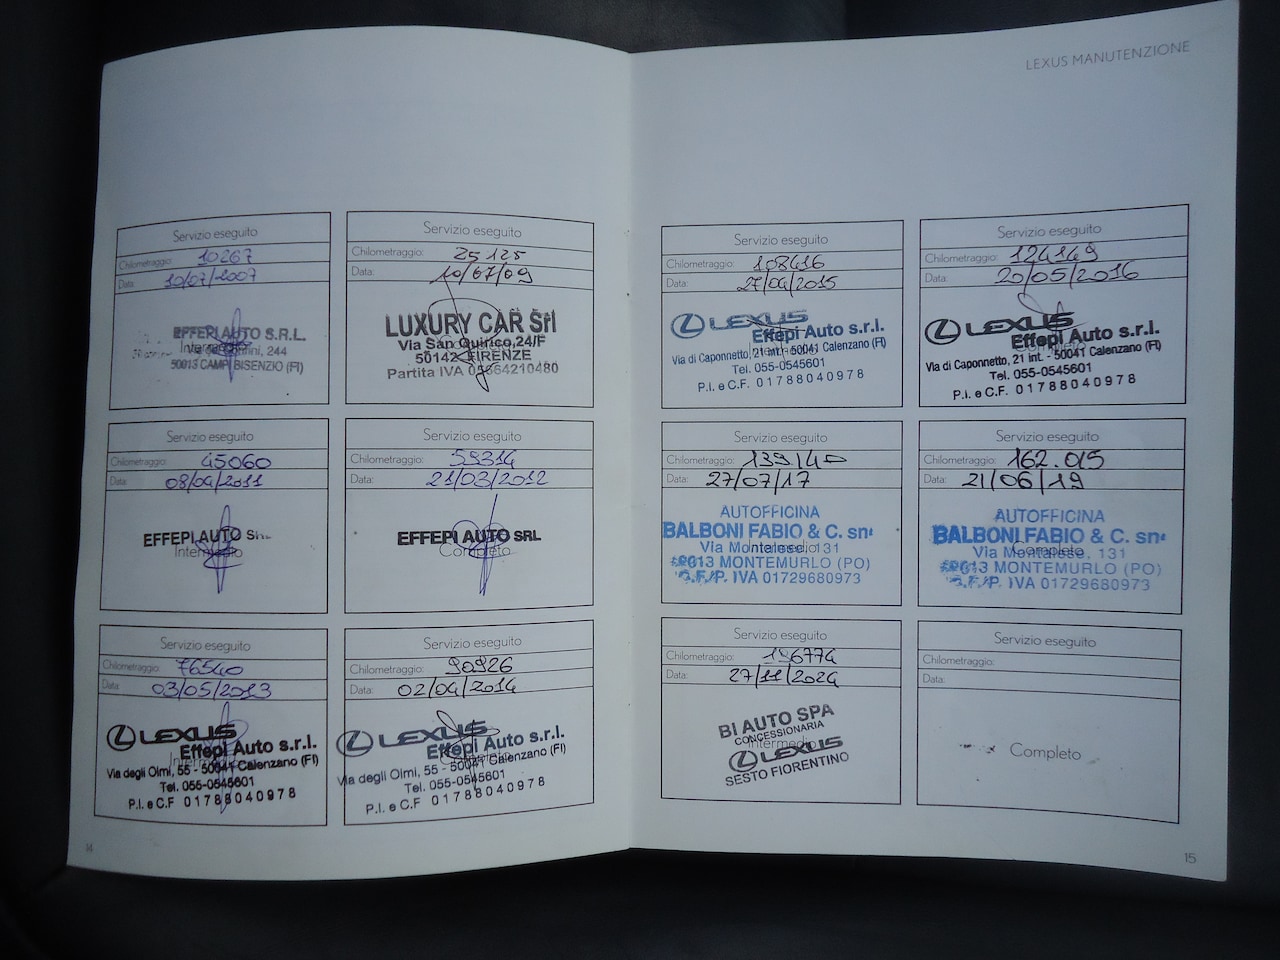 LEXUS MANUTENZIONE
Servizio eseguito
Chilometraggio: 10267
Data: 10/07/2007
EFFEPI AUTO S.R.L.
Intermedio
244
50013 CAMPI BISENZIO (FI)
Servizio eseguito
Chilometraggio: 25125
Data: 10/07/09
LUXURY CAR Srl
Via San Quirico,24/F
50142 FIRENZE
Completo
Partita IVA 05664210480
Servizio eseguito
Chilometraggio: 45060
Data: 08/04/2011
EFFEPI AUTO SRL
Intermedio
Servizio eseguito
Chilometraggio: 59314
Data: 21/03/2012
EFFEPI AUTO SRL
Completo
Servizio eseguito
Chilometraggio: 76540
Data: 03/05/2013
LEXUS
Effepi Auto s.r.l.
Intermedio
Via degli Olmi, 55 - 50041 Calenzano (FI)
Tel. 055-0545601
P.I. e C.F 01788040978
Servizio eseguito
Chilometraggio: 90926
Data: 02/04/2014
LEXUS
Effepi Auto s.r.l.
Completo
Via degli Olmi, 55 - 50041 Calenzano (FI)
Tel. 055-0545601
P.I. e C.F 01788040978
14
Servizio eseguito
Chilometraggio: 108416
Data: 27/04/2015
LEXUS
Effepi Auto s.r.l.
Intermedio
Via di Caponnetto, 21 int. - 50041 Calenzano (FI)
Tel. 055-0545601
P.I. e C.F. 01788040978
Servizio eseguito
Chilometraggio: 124149
Data: 20/05/2016
LEXUS
Effepi Auto s.r.l.
Completo
Via di Caponnetto, 21 int. - 50041 Calenzano (FI)
Tel. 055-0545601
P.I. e C.F. 01788040978
Servizio eseguito
Chilometraggio: 139140
Data: 27/07/17
AUTOFFICINA
BALBONI FABIO & C. snc
Via Montalese, 131
Intermedio
59013 MONTEMURLO (PO)
C.F./P. IVA 01729680973
Servizio eseguito
Chilometraggio: 162.015
Data: 21/06/19
AUTOFFICINA
BALBONI FABIO & C. snc
Via Montalese, 131
Completo
59013 MONTEMURLO (PO)
C.F./P. IVA 01729680973
Servizio eseguito
Chilometraggio: 196774
Data: 27/11/2024
BI AUTO SPA
CONCESSIONARIA
Intermedio
LEXUS
SESTO FIORENTINO
Servizio eseguito
Chilometraggio:
Data:
Completo
15